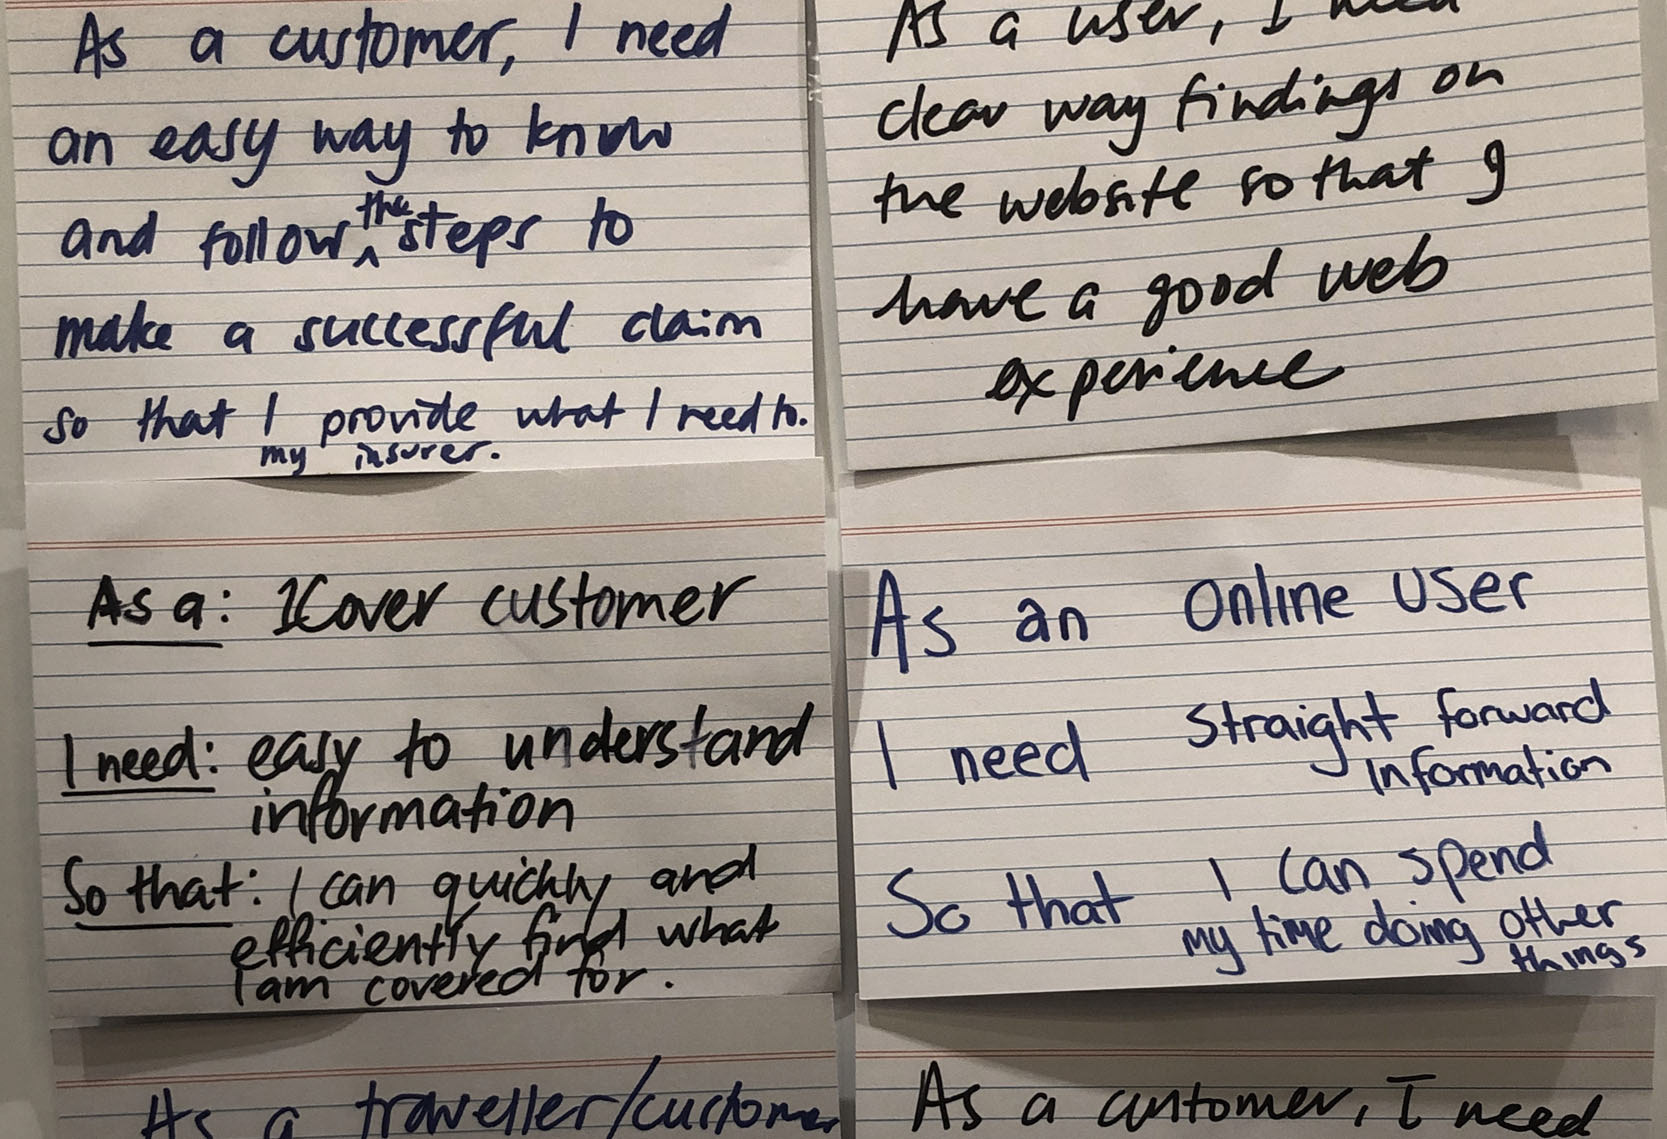 As a customer, I need
an easy way to know
and follow the steps to
make a successful claim
so that I provide what I need to.
my insurer.
As a user, I need
clear way findings on
the website so that I
have a good web
experience
As a: 1Cover customer
I need: easy to understand
information
So that: I can quickly and
efficiently find what
I am covered for.
As an Online User
I need Straight forward
Information
So that I can spend
my time doing other
things
As a traveller/customer
As a customer, I need